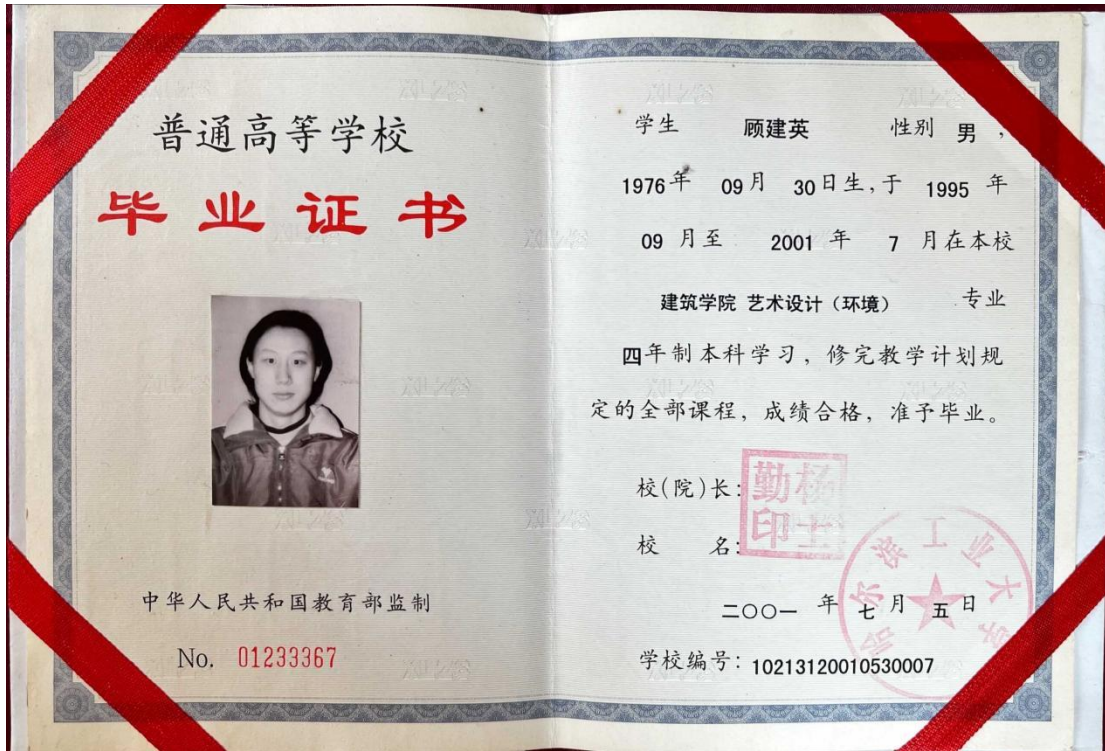 普通高等学校
毕业证书
中华人民共和国教育部监制
No. 01233367
学生 顾建英 性别 男，
1976年 09月 30日生，于 1995 年
09 月至 2001 年 7 月在本校
建筑学院 艺术设计（环境） 专业
四年制本科学习，修完教学计划规
定的全部课程，成绩合格，准予毕业。
校(院)长：
杨士勤印
校 名：
哈尔滨工业大学
二○○一 年 七 月 五 日
学校编号：10213120010530007